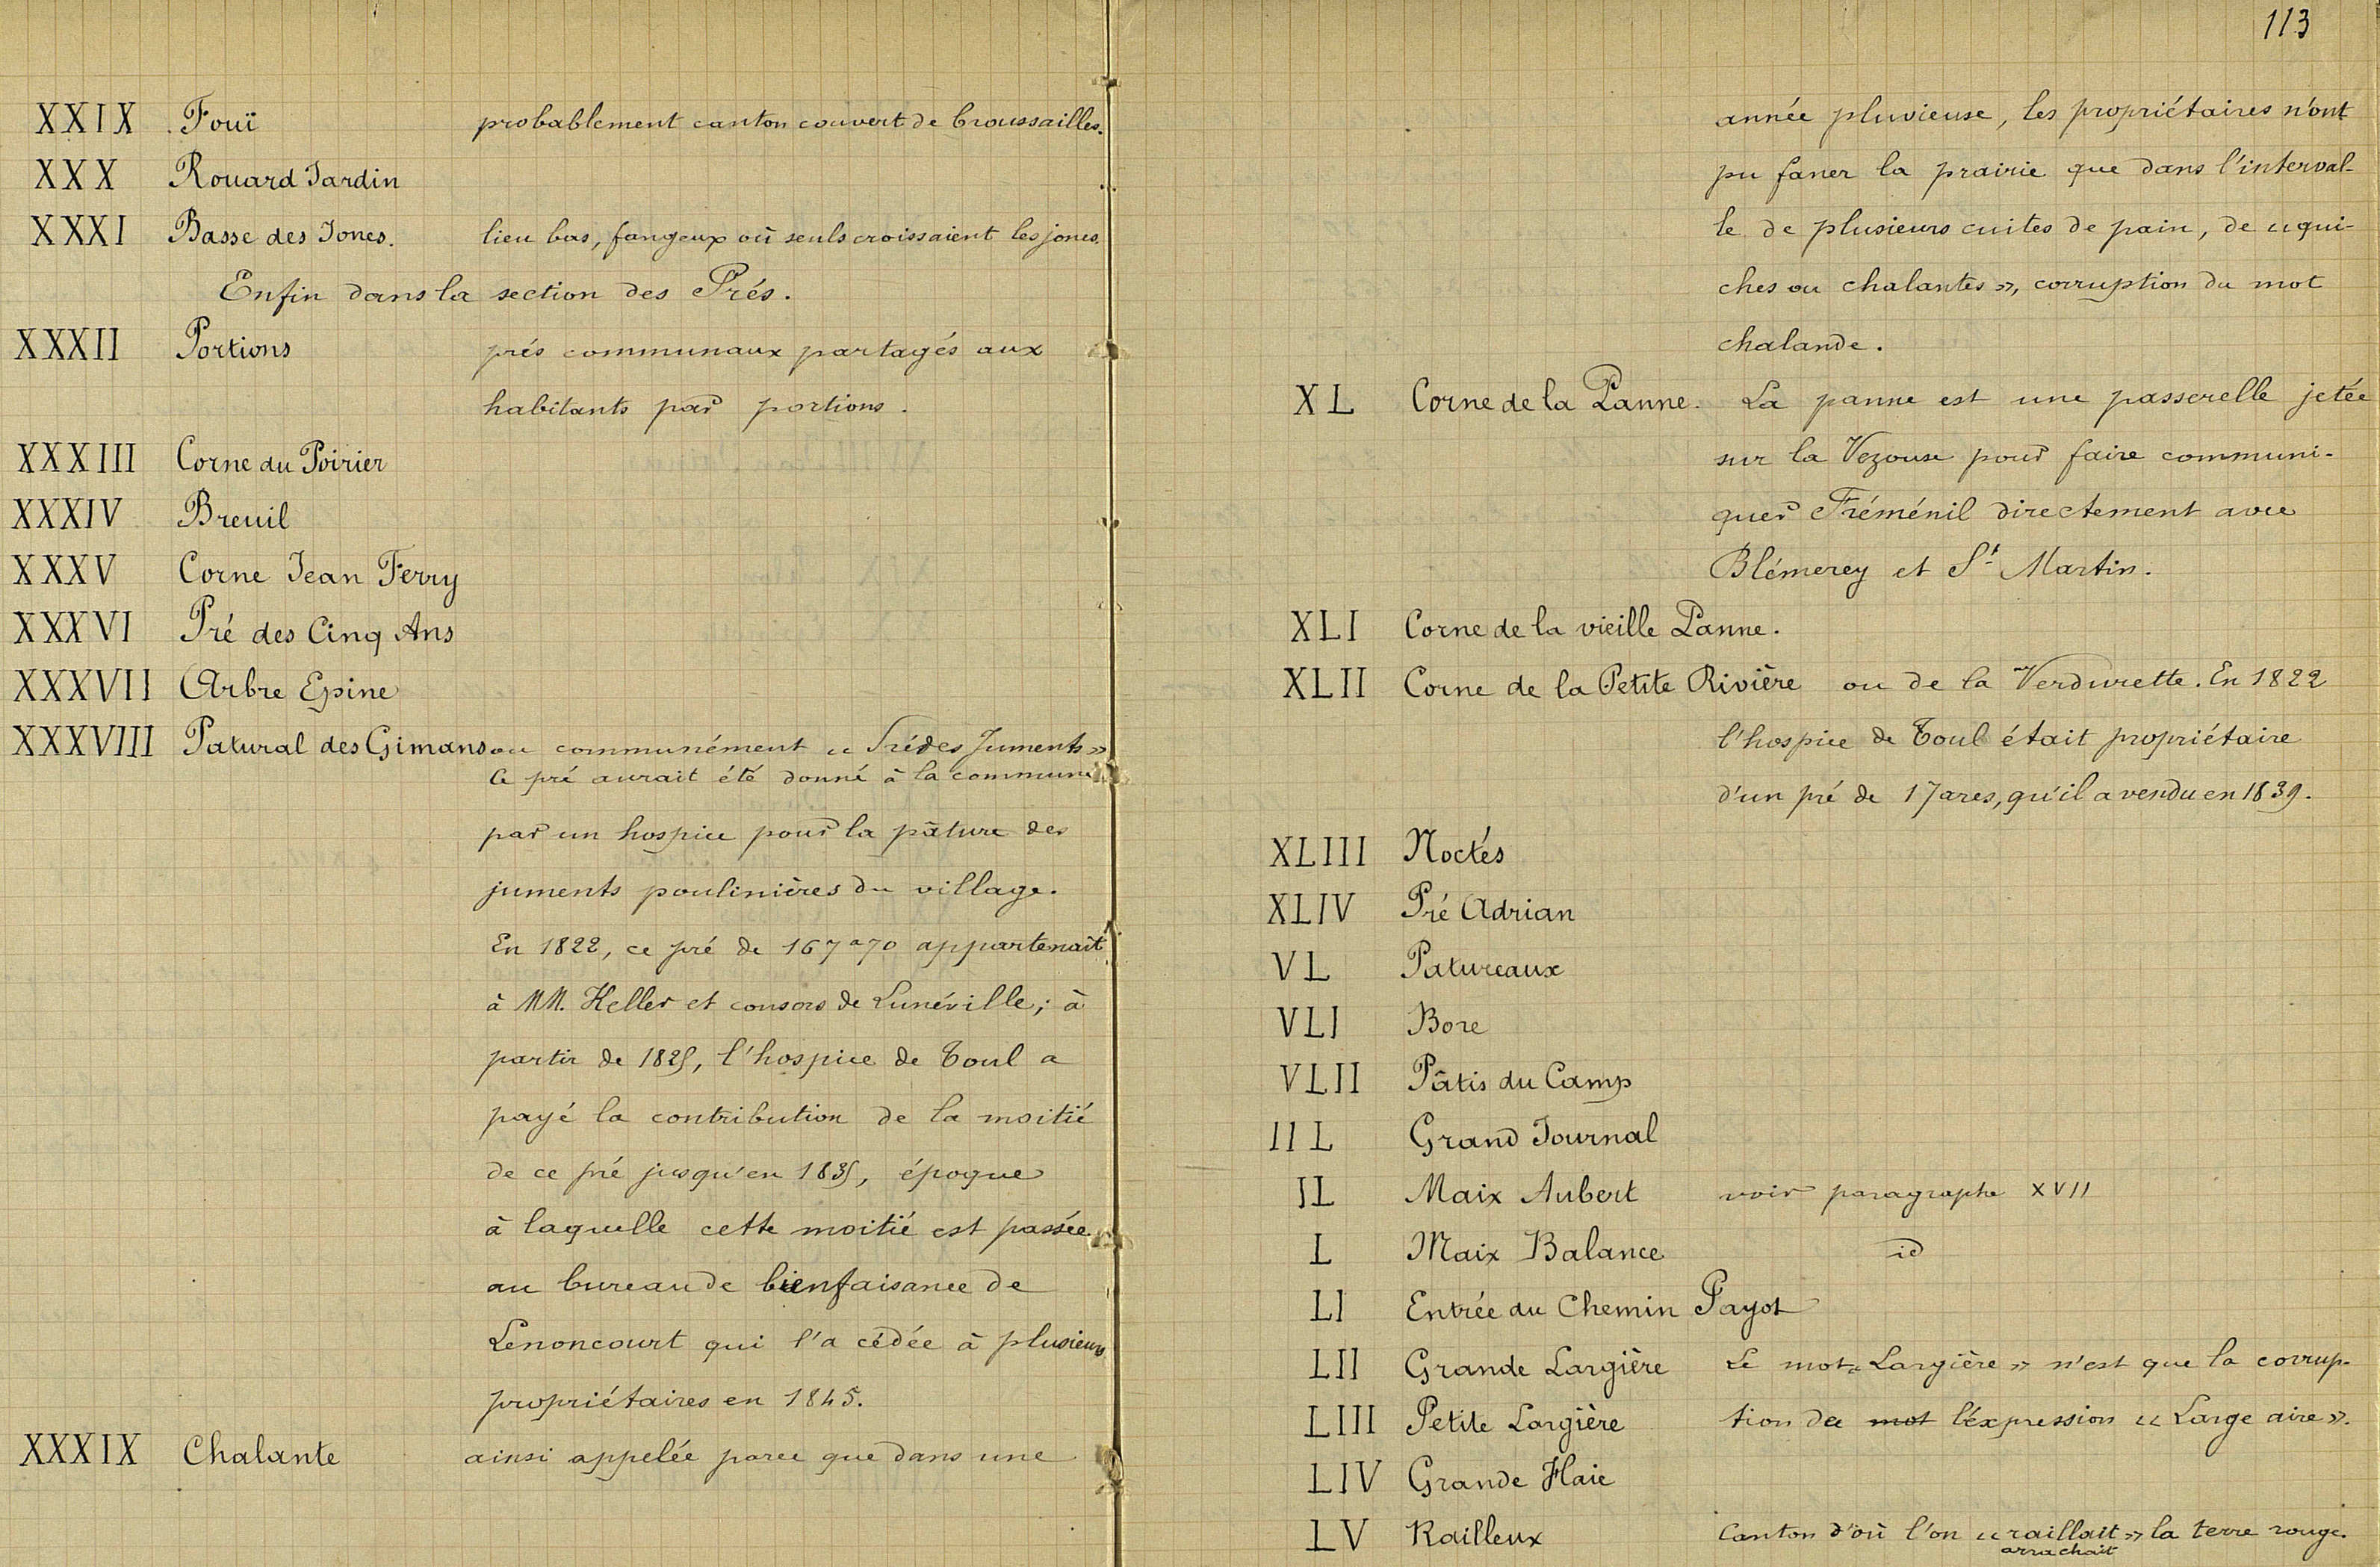 XXIX Fouï probablement canton couvert de broussailles.
XXX Rouard Jardin
XXXI Basse des Joncs. lieu bas, fangeux où seuls croissaient les joncs.
Enfin dans la section des Prés.
XXXII Portions prés communaux partagés aux
habitants par portions.
XXXIII Corne du Poirier
XXXIV Breuil
XXXV Corne Jean Ferry
XXXVI Pré des Cinq Ans
XXXVII Arbre Epine
XXXVIII Patural des Gimans ou communément « Pré des Juments »
Ce pré aurait été donné à la commune
par un hospice pour la pâture des
juments poulinières du village.
En 1822, ce pré de 167ª70 appartenait
à MM. Keller et consors de Lunéville; à
partir de 1825, l'hospice de Toul a
payé la contribution de la moitié
de ce pré jusqu'en 1835, époque
à laquelle cette moitié est passée
au bureau de bienfaisance de
Lenoncourt qui l'a cédée à plusieurs
propriétaires en 1845.
XXXIX Chalante ainsi appelée parce que dans une
113
année pluvieuse, les propriétaires n'ont
pu faner la prairie que dans l'interval-
le de plusieurs cuites de pain, de « qui-
ches ou chalantes », corruption du mot
chalande.
XL Corne de la Panne. La panne est une passerelle jetée
sur la Vezouse pour faire communi-
quer Fréménil directement avec
Blémerey et St Martin.
XLI Corne de la vieille Panne.
XLII Corne de la Petite Rivière ou de la Verdurette. En 1822
l'hospice de Toul était propriétaire
d'un pré de 17 ares, qu'il a vendu en 1839.
XLIII Noctés
XLIV Pré Adrian
VL Patureaux
VLI Bore
VLII Pâtis du Camp
IIL Grand Journal
IL Maix Aubert voir paragraphe XVII
L Maix Balance id
LI Entrée du Chemin Payot
LII Grande Largière Le mot « Largière » n'est que la corrup-
LIII Petite Largière tion de mot l'éxpression « Large aire ».
LIV Grande Haie
LV Railleux Canton d'où l'on « raillait » la terre rouge.
arrachait